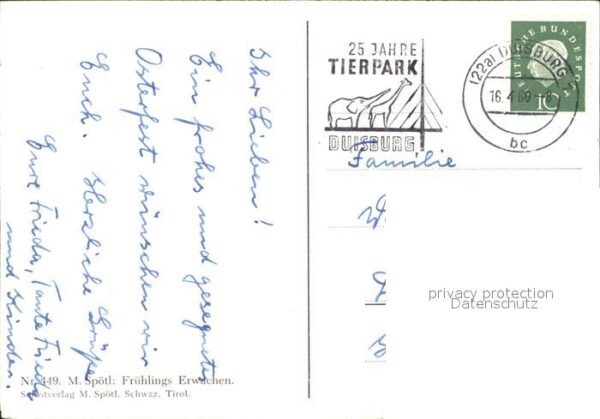 Ihr Lieben!
Ein frohes und gesegnetes
Osterfest wünschen wir
Euch. Herzliche Grüße
Eure Frieda, Tante Frieda
und Kinder.
Nr. 449. M. Spötl: Frühlings Erwachen.
Selbstverlag M. Spötl. Schwaz. Tirol.
25 JAHRE
TIERPARK
DUISBURG
(22a) DUISBURG
16.4.60
bc
DEUTSCHE BUNDESPOST
10
Familie
privacy protection
Datenschutz